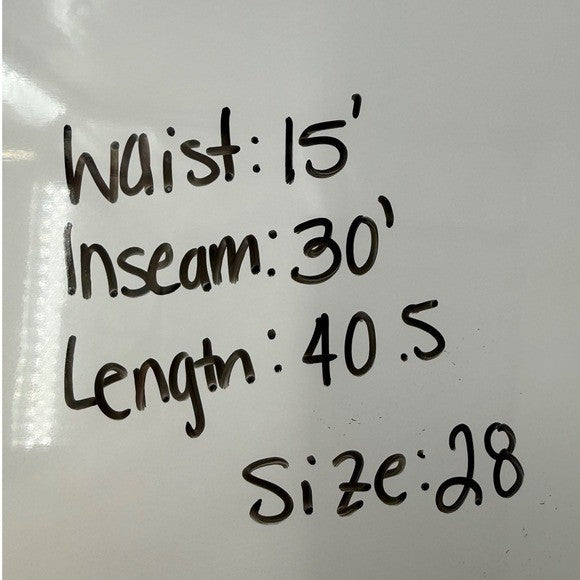 Waist: 15'
Inseam: 30'
Length: 40.5
Size: 28